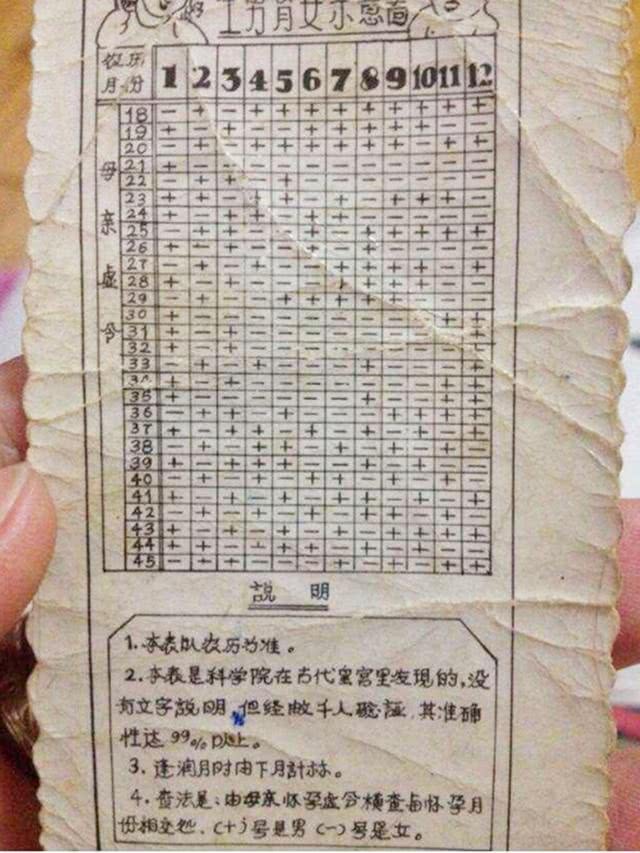 生男育女示意图
农历
月份 1 2 3 4 5 6 7 8 9 10 11 12
母亲虚令
18 − + − + + + + + + + + +
19 + − + − − − − + + + − −
20 − + − + + + + + + − + +
21 + − − − − − − − − − − −
22 − + + − + − − − − − − −
23 + + − + + − + − + + + −
24 + − + + − + + − − − − −
25 − + + − − + − + + + + +
26 + − + − − + − + − − − −
27 − + − + − − + + + + − +
28 + − + − − − + + + + − −
29 − + − − + + + + + − − −
30 + − − − − − − − − − + +
31 + − + − − − − − − − − +
32 + − + − − − − − − − − +
33 − + − + − − − + − − − +
34 + − + − − − − − − − + +
35 + − − − − − − + − − + +
36 − + + − + − − − + + + +
37 + − + + − + − + − + − +
38 − + − + + − + − + − + −
39 + − + + + − − + − + − −
40 − + − + − + + − + − + −
41 + − + + + − + + − + − +
42 − + − + − + − + + − + −
43 + − + − + − + − + + + +
44 + + − + + + − + − + − −
45 − + + − − − + − + − + +
説 明
1. 本表以农历为准。
2. 本表是科学院在古代皇宫里发现的,没
有文字説明,但经数千人驗証,其准确
性达99%以上。
3. 逢润月时由下月計标。
4. 查法是:由母亲怀孕虚令横查与怀孕月
份相交处.(+)号是男(−)号是女。